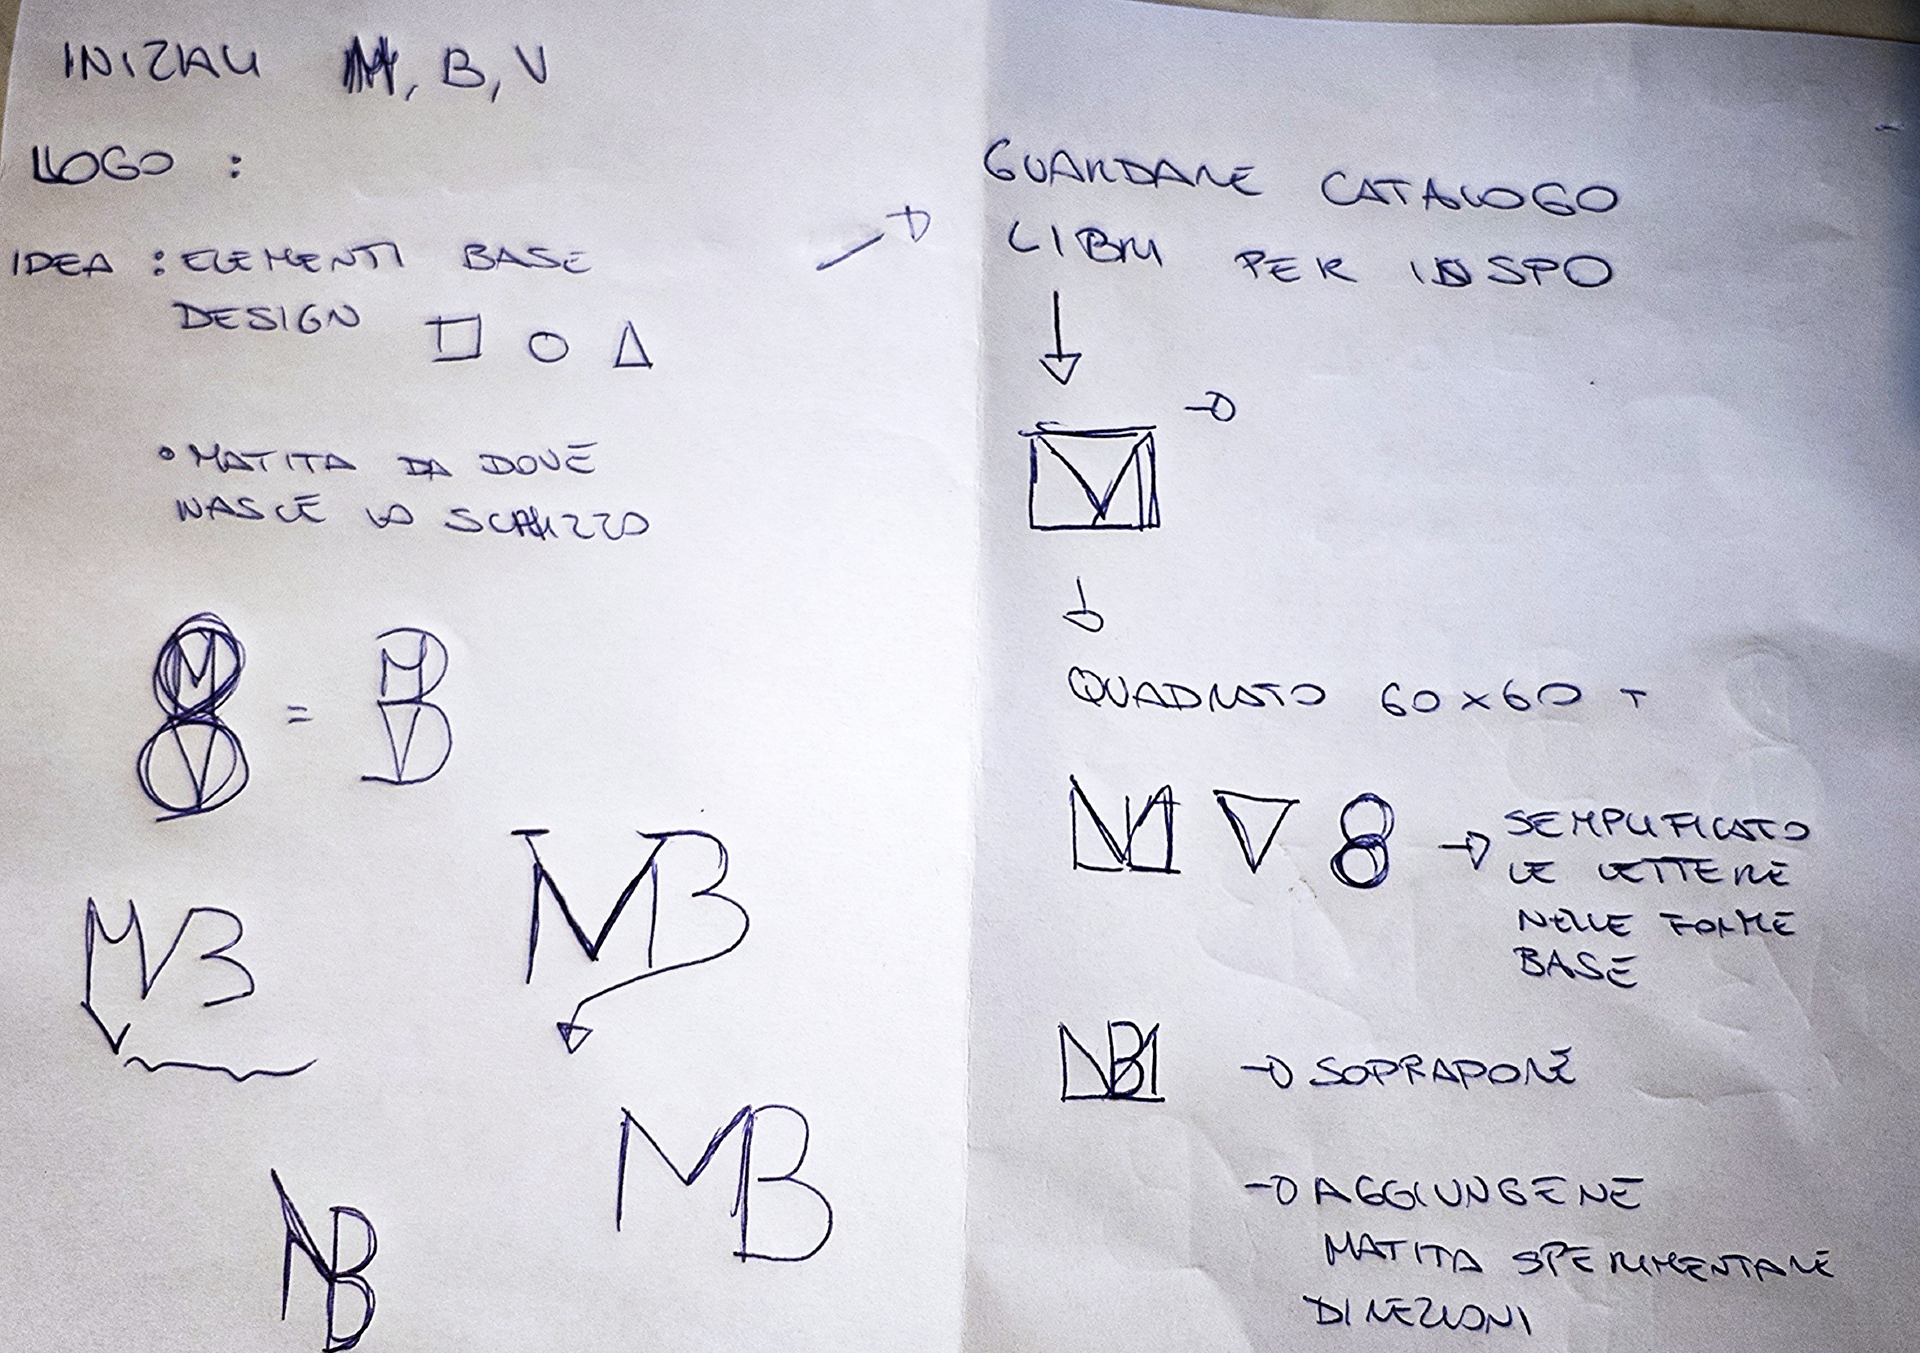 INIZIALI M, B, V
LOGO :
IDEA : ELEMENTI BASE
DESIGN
• MATITA DA DOVE
NASCE LO SCHIZZO
M
V
=
M
V
MVB
MB
MB
NB
GUARDARE CATALOGO
LIBRI PER INSPO
M
QUADRATO 60x60 +
M V 8 SEMPLIFICATO
LE LETTERE
NELLE FORME
BASE
MB SOPRAPORE
AGGIUNGERE
MATITA SPERIMENTARE
DIREZIONI